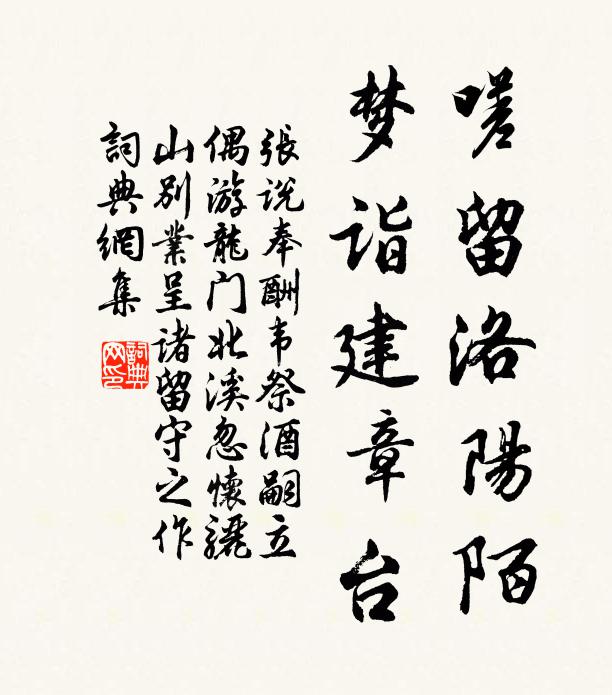 嗟留洛陽陌
梦诣建章台
張说奉酬韦祭酒嗣立
偶游龍门北溪忽懷驪
山別業呈诸留守之作
詞典網集
詞典网印